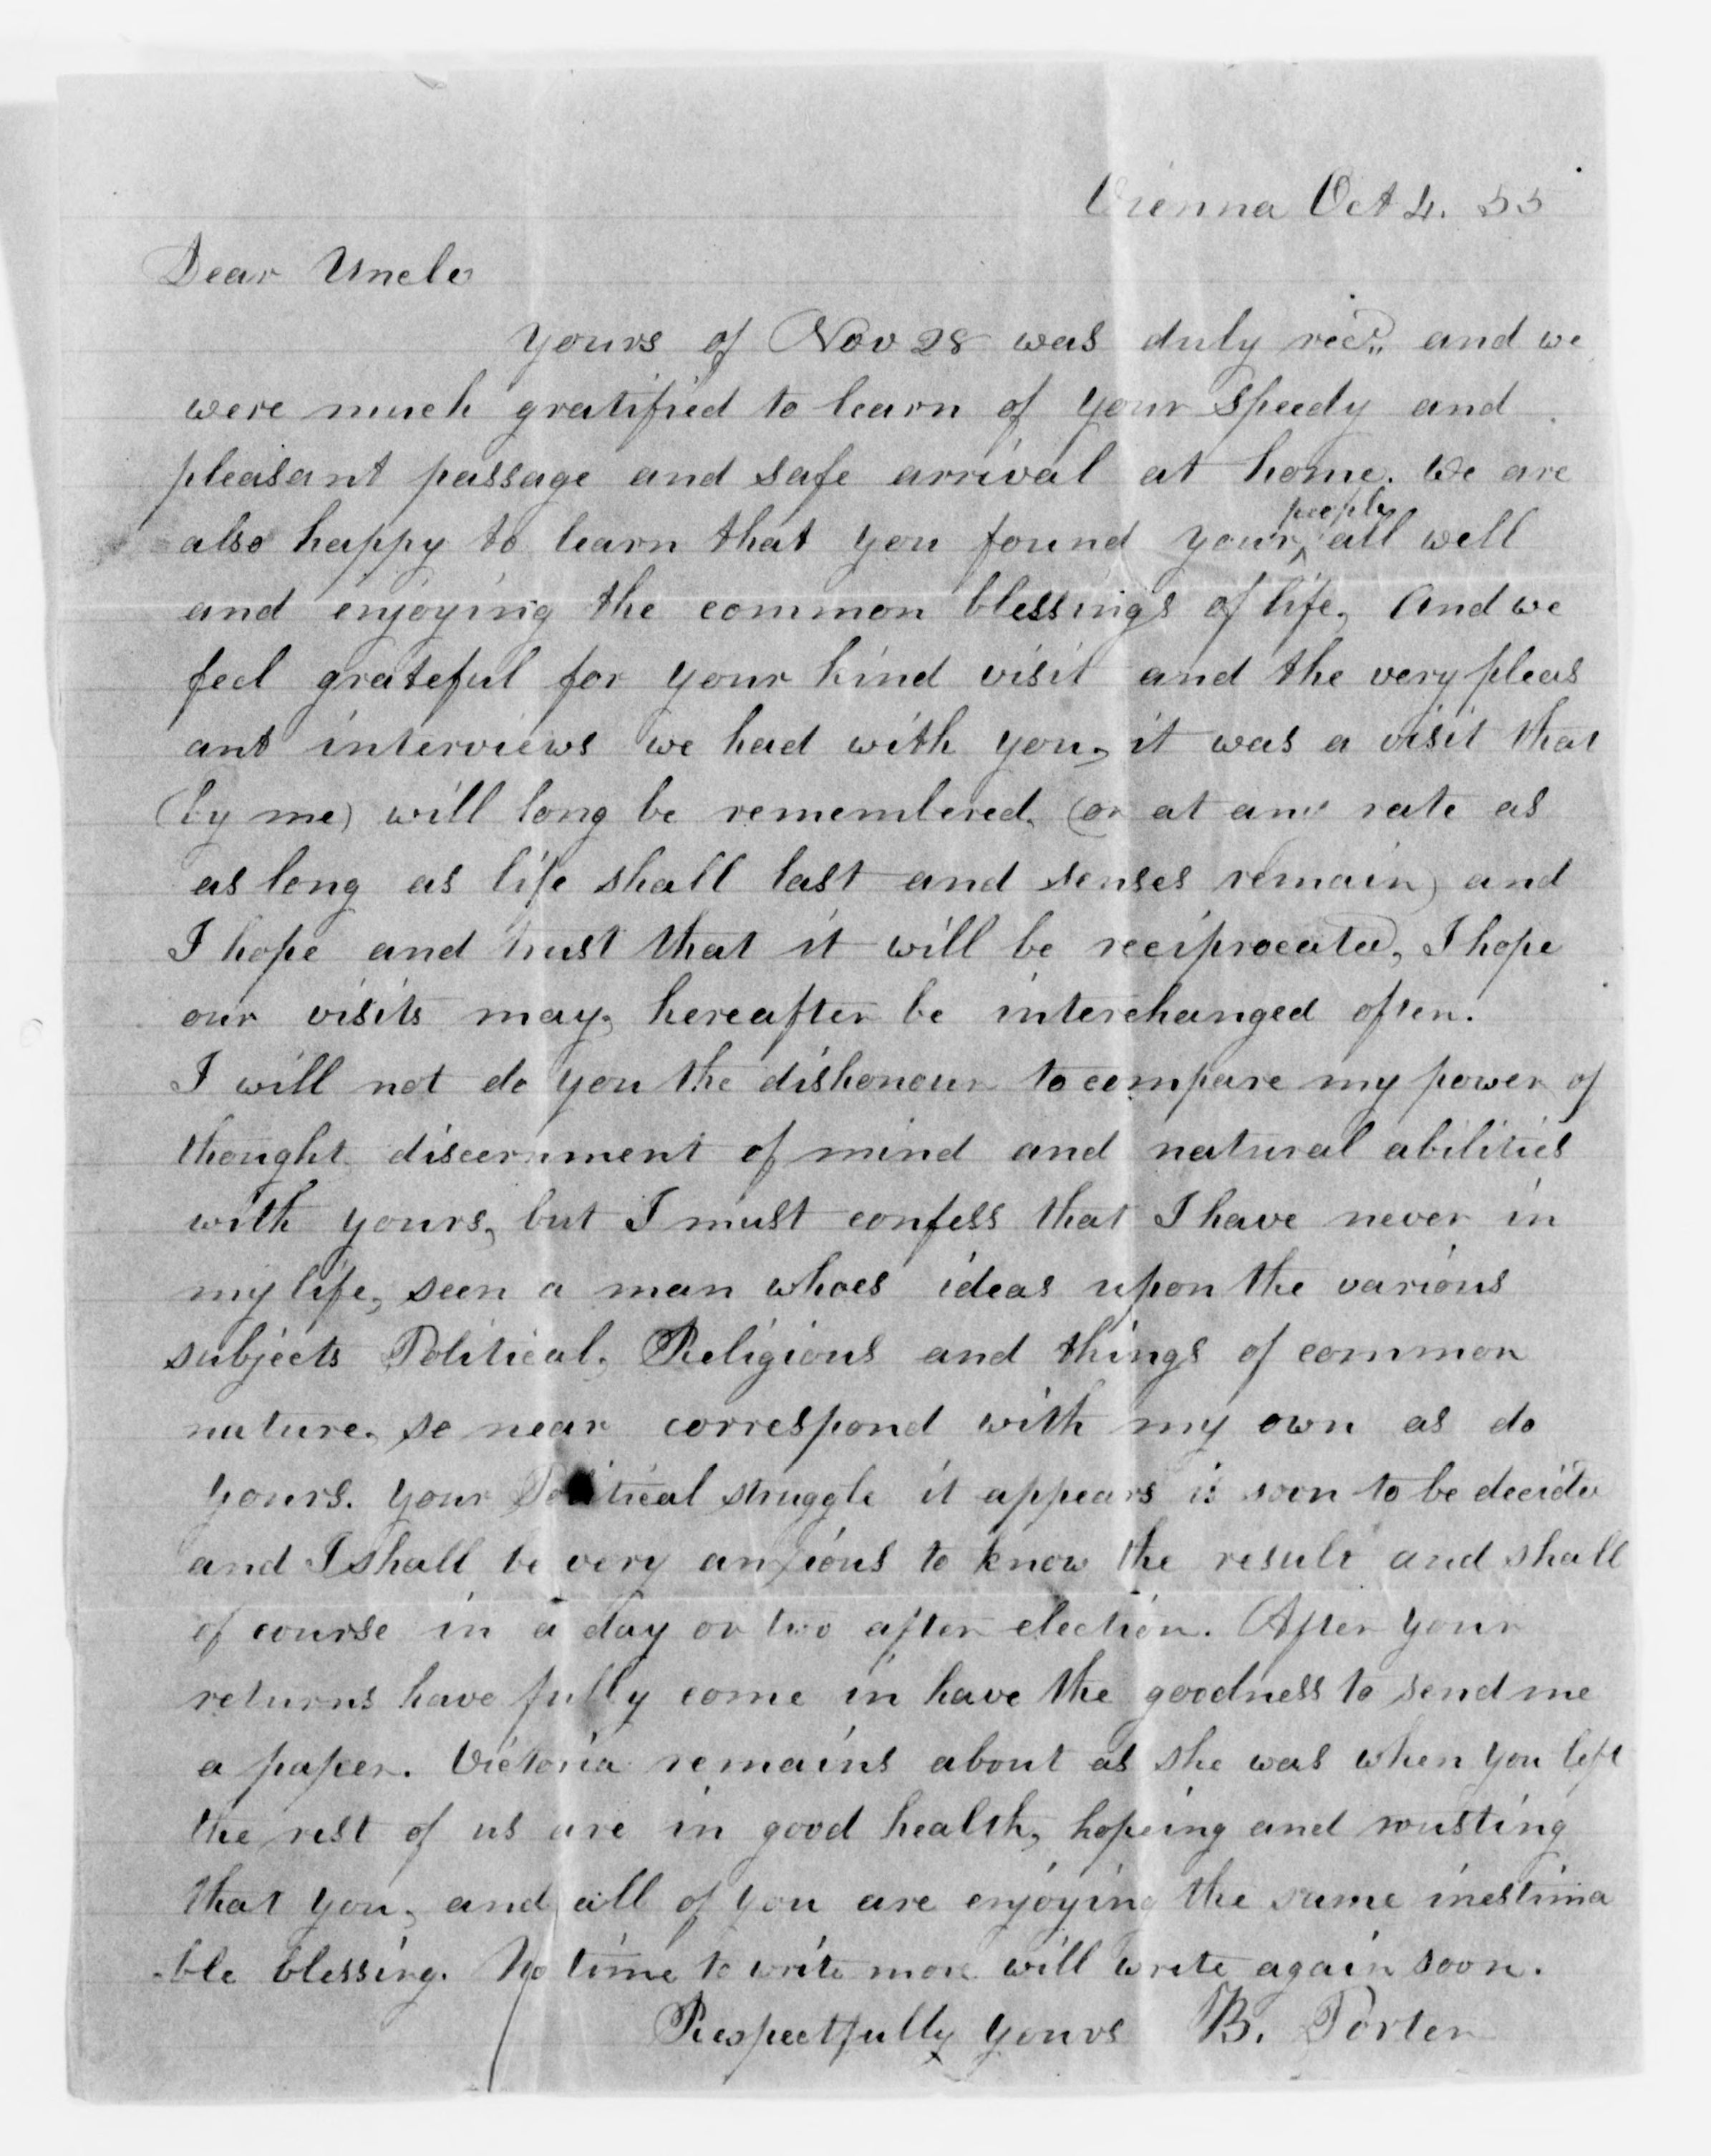 Vienna Oct 4. 55
Dear Uncle
yours of Nov 28 was duly recd. and we
were much gratified to learn of your speedy and
pleasant passage and safe arrival at home. We are
people
also happy to learn that you found your ^ all well
and enjoying the common blessings of life, And we
feel grateful for your kind visit and the very pleas
ant interviews we had with you, it was a visit that
(by me) will long be remembered, (or at any rate as
as long as life shall last and senses remain) and
I hope and trust that it will be reciprocated, I hope
our visits may, hereafter be interchanged often.
I will not do you the dishonour to compare my power of
thought, discernment of mind and natural abilities
with yours, but I must confess that I have never in
my life, seen a man whoes ideas upon the various
subjects Political, Religious and things of common
nature, so near correspond with my own as do
yours. your Political struggle it appears is soon to be decided
and I shall be very anxious to know the result and shall
of course in a day or two after election. After your
returns have fully come in have the goodness to send me
a paper. Victoria remains about as she was when you left
the rest of us are in good health, hopeing and trusting
that you, and all of you are enjoying the same inestima
-ble blessing. No time to write more will write again soon.
Respectfully yours B. Porter